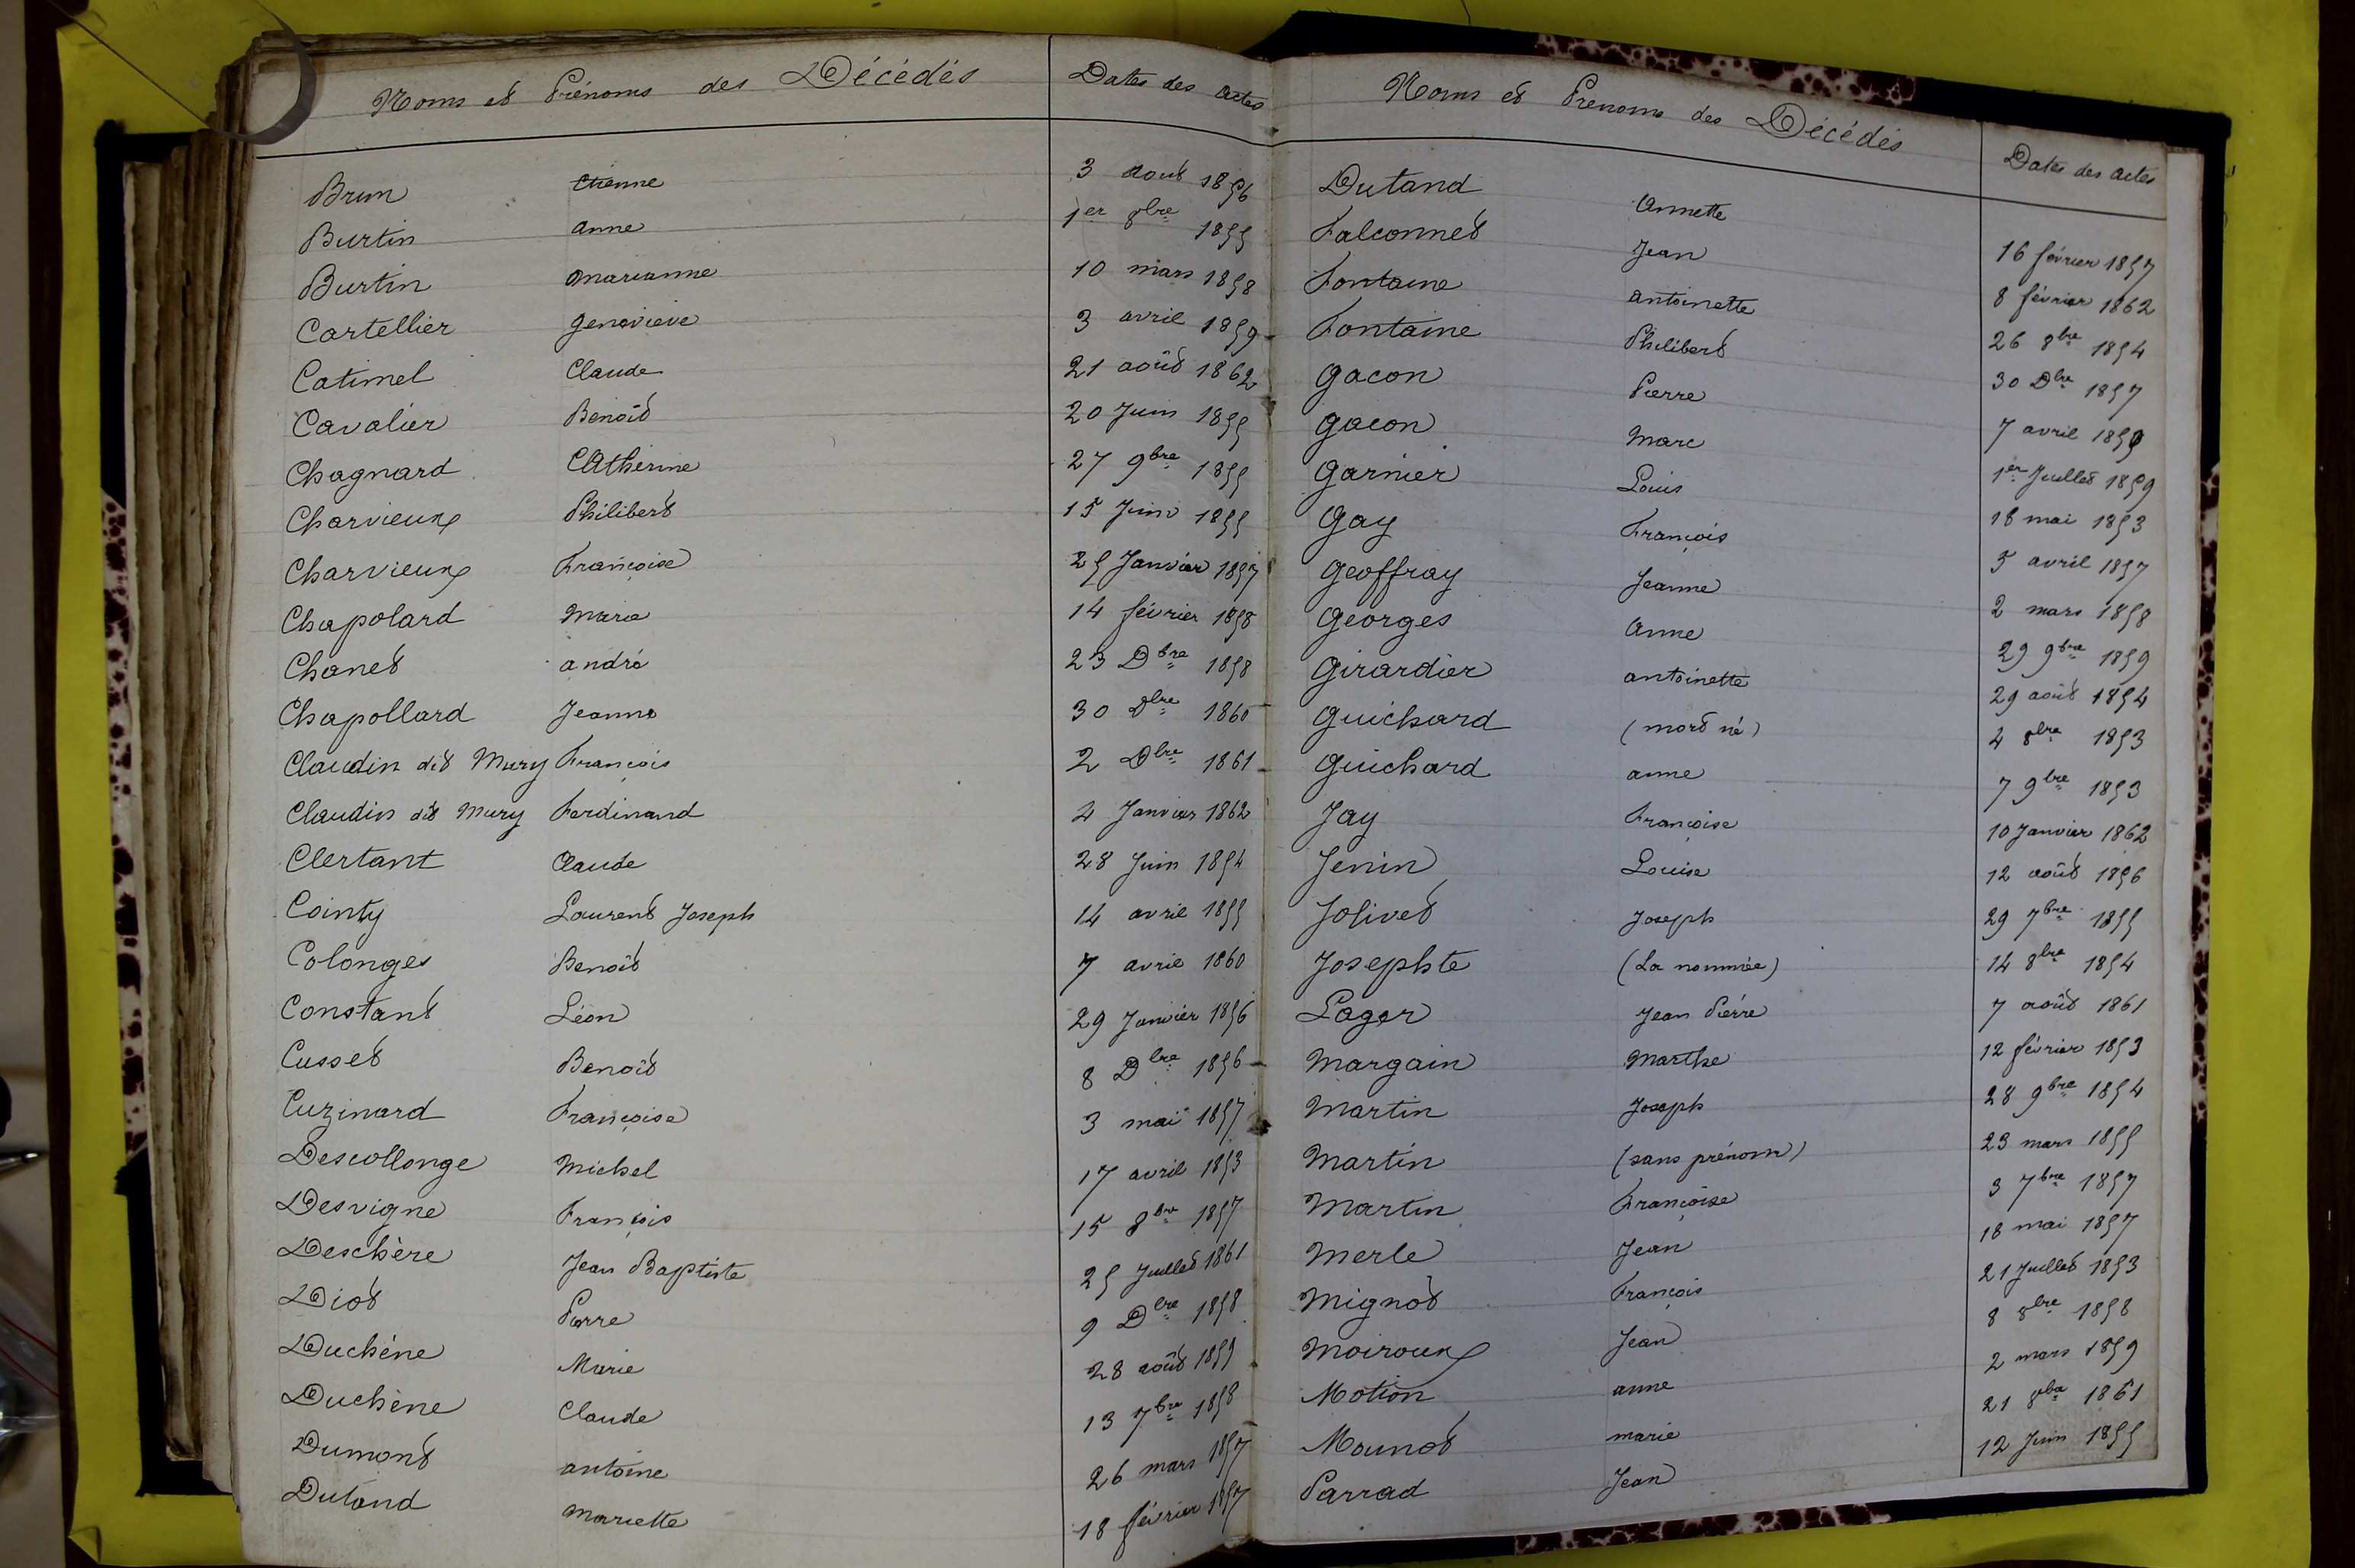 Noms et Prénoms des Décédés Dates des Actes
Brun Etienne 3 aout 1856
Burtin Anne 1er 8bre 1855
Burtin Marianne 10 mars 1858
Cartellier Genevieve 3 avril 1859
Catimel Claude 21 août 1862
Cavalier Benoît 20 Juin 1855
Chagnard Catherine 27 9bre 1855
Charvieux Philibert 15 Juin 1855
Charvieux Françoise 25 Janvier 1857
Chapolard Marie 14 février 1858
Chanet andré 23 Dbre 1858
Chapollard Jeanne 30 Dbre 1860
Claudin dit Mury François 2 Dbre 1861
Claudin dit Mury Ferdinand 4 Janvier 1862
Clertant Claude 28 Juin 1854
Cointy Laurent Joseph 14 avril 1855
Colonges Benoît 7 avril 1860
Constant Léon 29 Janvier 1856
Cusset Benoît 8 Dbre 1856
Cuzinard Françoise 3 mai 1857
Descollonge Michel 17 avril 1853
Desvigne François 15 8bre 1857
Deschère Jean Baptiste 25 Juillet 1861
Diot Pierre 9 Dbre 1858
Duchène Marie 28 août 1859
Duchène Claude 13 7bre 1858
Dumont antoine 26 mars 1857
Dutand Mariette 18 février 1857
Noms et Prenoms des Décédés Dates des Actes
Dutand Annette 16 février 1857
Falconnet Jean 8 février 1862
Fontaine antoinette 26 8bre 1854
Fontaine Philibert 30 Dbre 1857
Gacon Pierre 7 avril 1859
Gacon Marc 1er Juillet 1859
Garnier Louis 18 mai 1853
Gay François 5 avril 1857
Geoffray Jeanne 2 mars 1858
Georges Anne 29 9bre 1859
Girardier antoinette 29 août 1854
Guichard (mort né) 4 8bre 1853
Guichard anne 7 9bre 1853
Jay Françoise 10 Janvier 1862
Jenin Louise 12 août 1856
Jolivet Joseph 29 7bre 1855
Josephte (La nommée) 14 8bre 1854
Lager Jean Pierre 7 août 1861
Margain Marthe 12 février 1853
Martin Joseph 28 9bre 1854
Martin (sans prénom) 23 mars 1855
Martin Françoise 3 7bre 1857
Merle Jean 18 mai 1857
Mignot François 21 Juillet 1853
Moiroux Jean 8 8bre 1858
Motion anne 2 mars 1859
Mounot marie 21 8bre 1861
Parrad Jean 12 Juin 1855